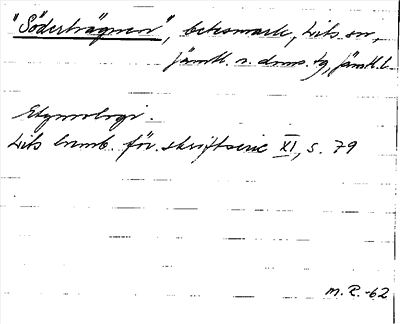 "Södertrågnen", betesmark, Lits sn,
Jämtl. n. doms. tg, Jämtl. l.
Etymologi.
Lits hemb. för. skriftserie XI, s. 79
M. R. -62